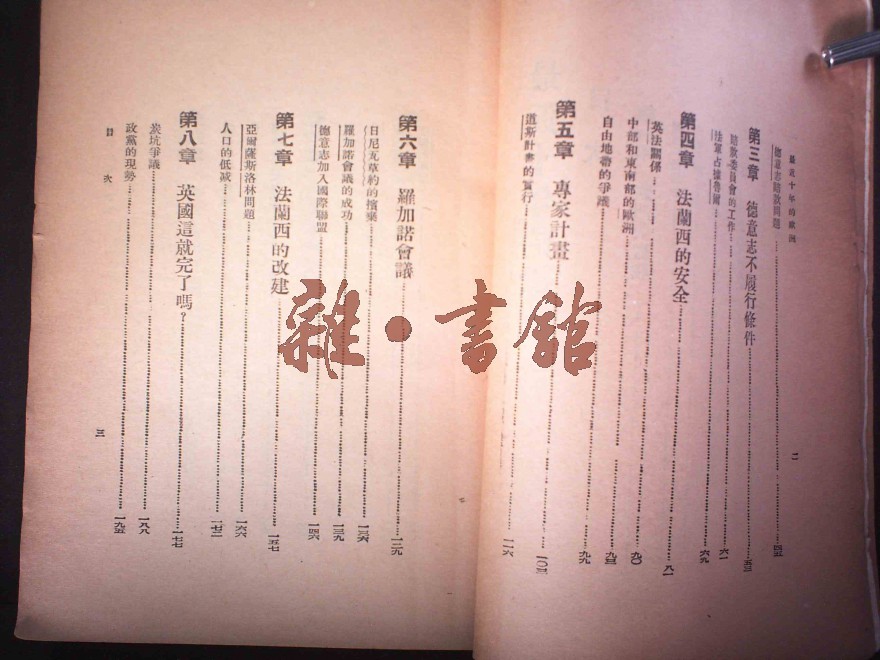 最近十年的歐洲
二
德意志賠款問題 四五
第三章 德意志不履行條件 五三
賠款委員會的工作 六一
法軍占據魯爾 六九
第四章 法蘭西的安全 八一
英法關係 九〇
中部和東南部的歐洲 九三
自由地帶的爭議 九九
第五章 專家計畫 一〇三
道斯計畫的實行 一一六
第六章 羅加諾會議 一二九
日尼瓦草約的擯棄 一三六
羅加諾會議的成功 一三九
德意志加入國際聯盟 一四六
第七章 法蘭西的改建 一五七
亞爾薩斯洛林問題 一六六
人口的低減 一七二
第八章 英國這就完了嗎? 一七七
炭坑爭議 一八八
政黨的現勢 一九五
目次
三
雜·書館